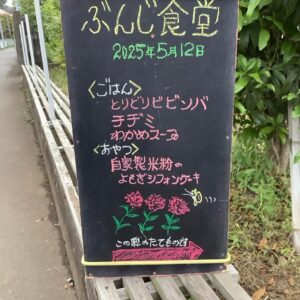 ぶんじ食堂
2025年5月12日
<ごはん>
とりどりビビンバ
チヂミ
わかめスープ
<おやつ>
自家製米粉の
よもぎシフォンケーキ
この奥のたてもの